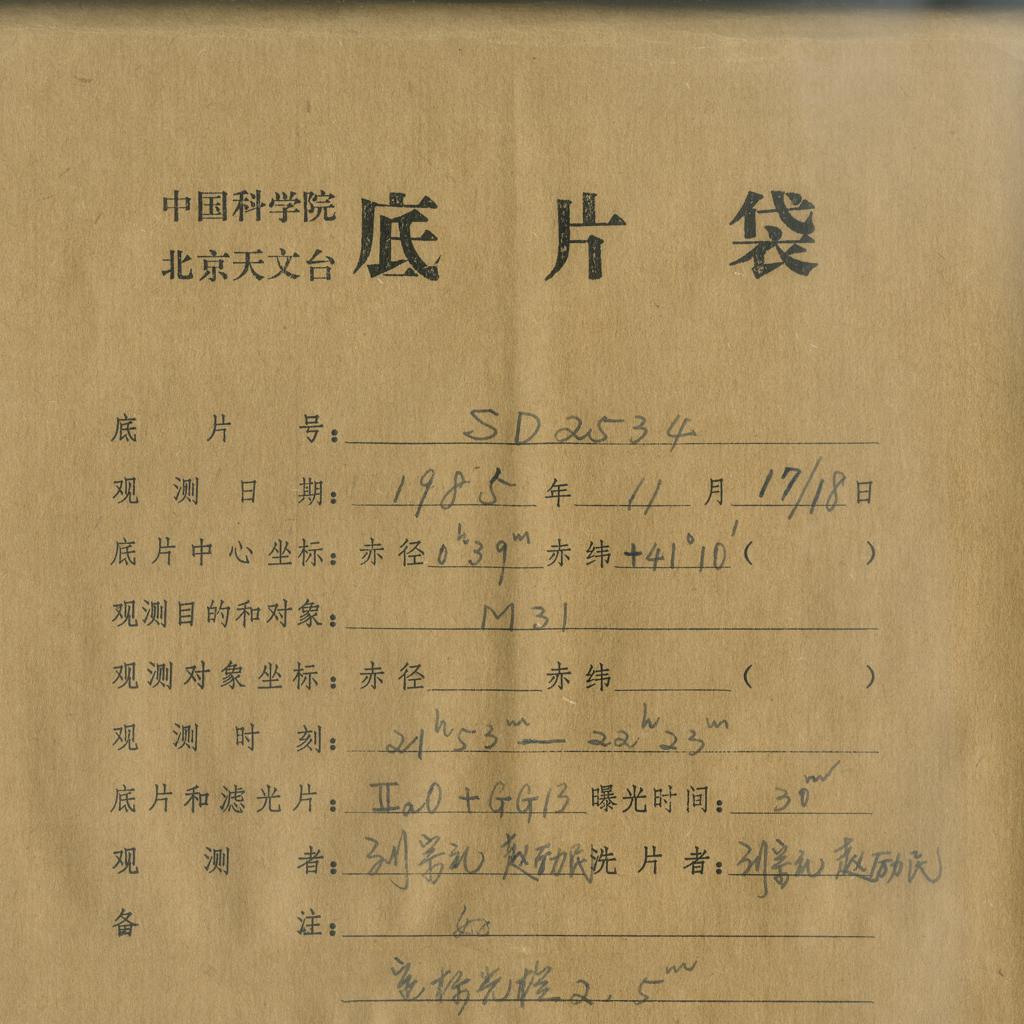 中国科学院
北京天文台
底片袋
底片号: SD2534
观测日期: 1985年11月17/18日
底片中心坐标: 赤径0ʰ39ᵐ赤纬+41°10′( )
观测目的和对象: M31
观测对象坐标: 赤径 赤纬 ( )
观测时刻: 21ʰ53ᵐ—22ʰ23ᵐ
底片和滤光片: IIaO+GG13 曝光时间: 30ᵐ
观测者: 刘宗礼 赵励民 洗片者: 刘宗礼 赵励民
备注:
定标光楔2.5ᵐ